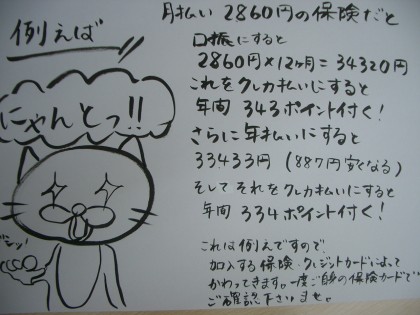 例えば
にゃんとっ!!
月払い 2860円の保険だと
口振にすると
2860円×12ヶ月=34320円
これをクレカ払いにすると
年間 343ポイント付く!
さらに年払いにすると
33433円 (887円安くなる)
そしてそれをクレカ払いにすると
年間 334ポイント付く!
これは例えですので
加入する保険・クレジットカードによって
かわってきます。一度ご自身の保険カードで
ご確認下さいませ。